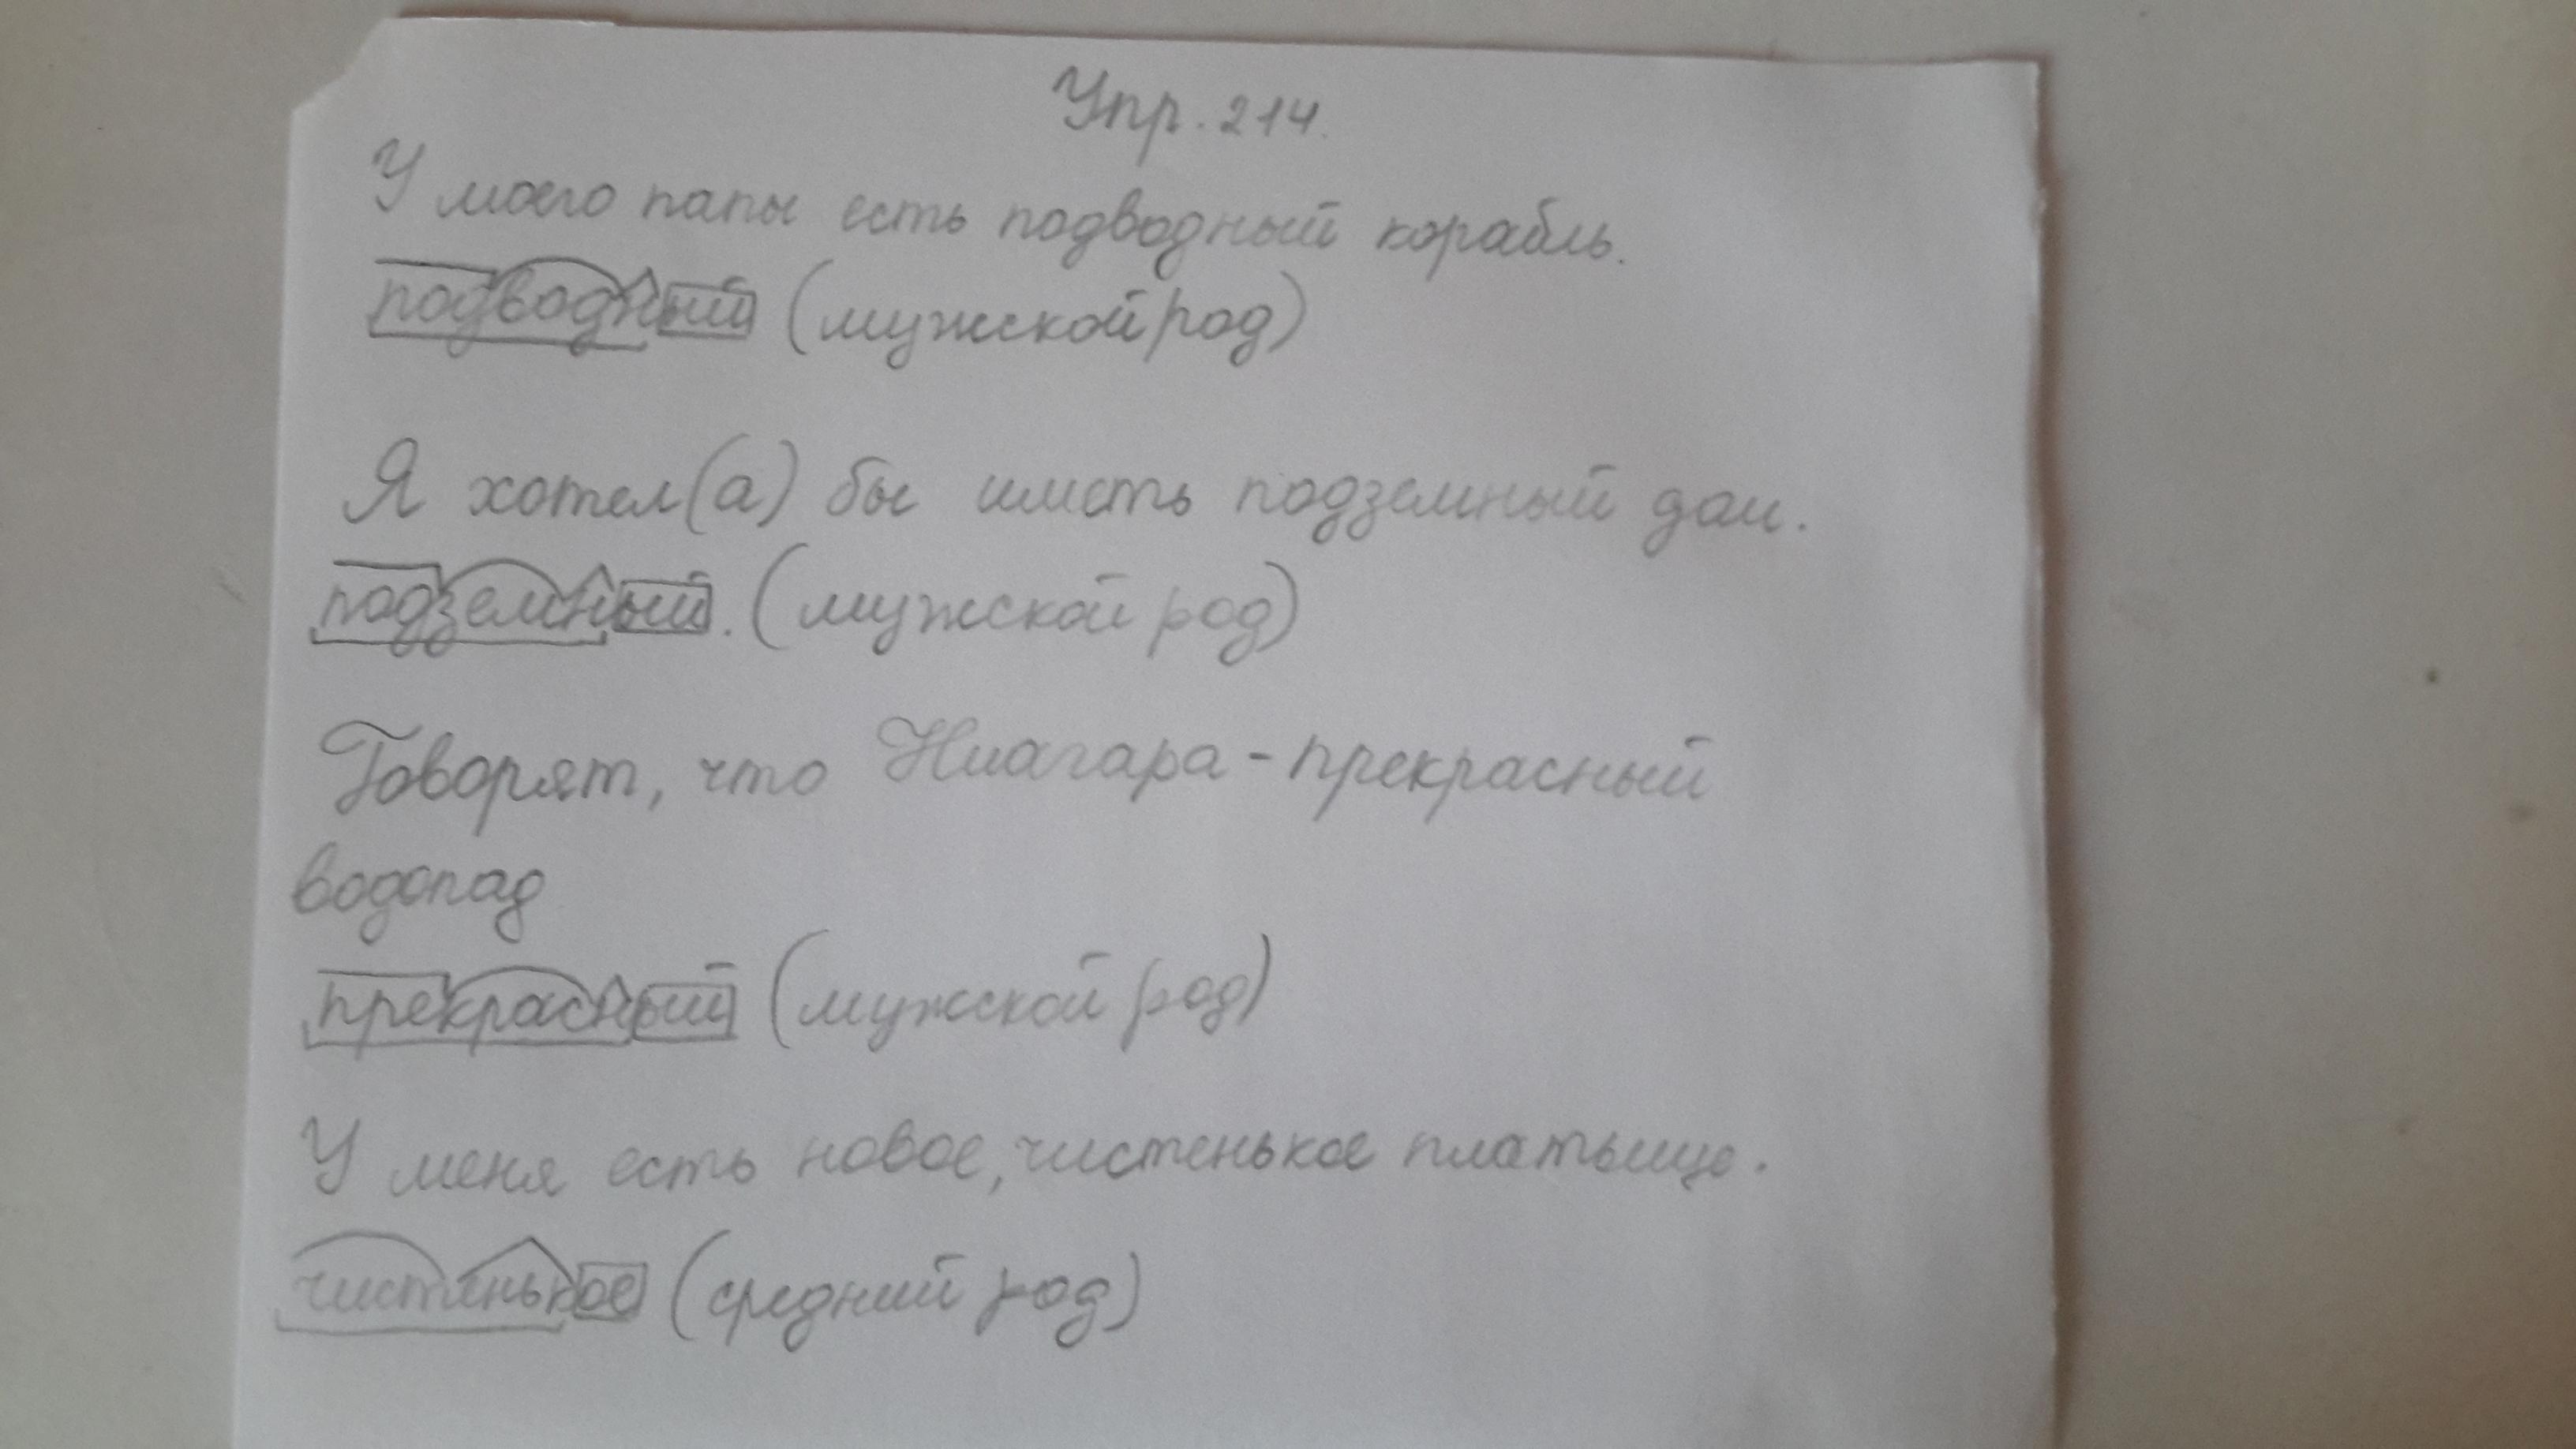 Упр. 214.
У моего папы есть подводный корабль.
подводный (мужской род)
Я хотел(а) бы иметь подземный дом.
подземный. (мужской род)
Говорят, что Ниагара - прекрасный
водопад
прекрасный (мужской род)
У меня есть новое, чистенькое платьице.
чистенькое (средний род)